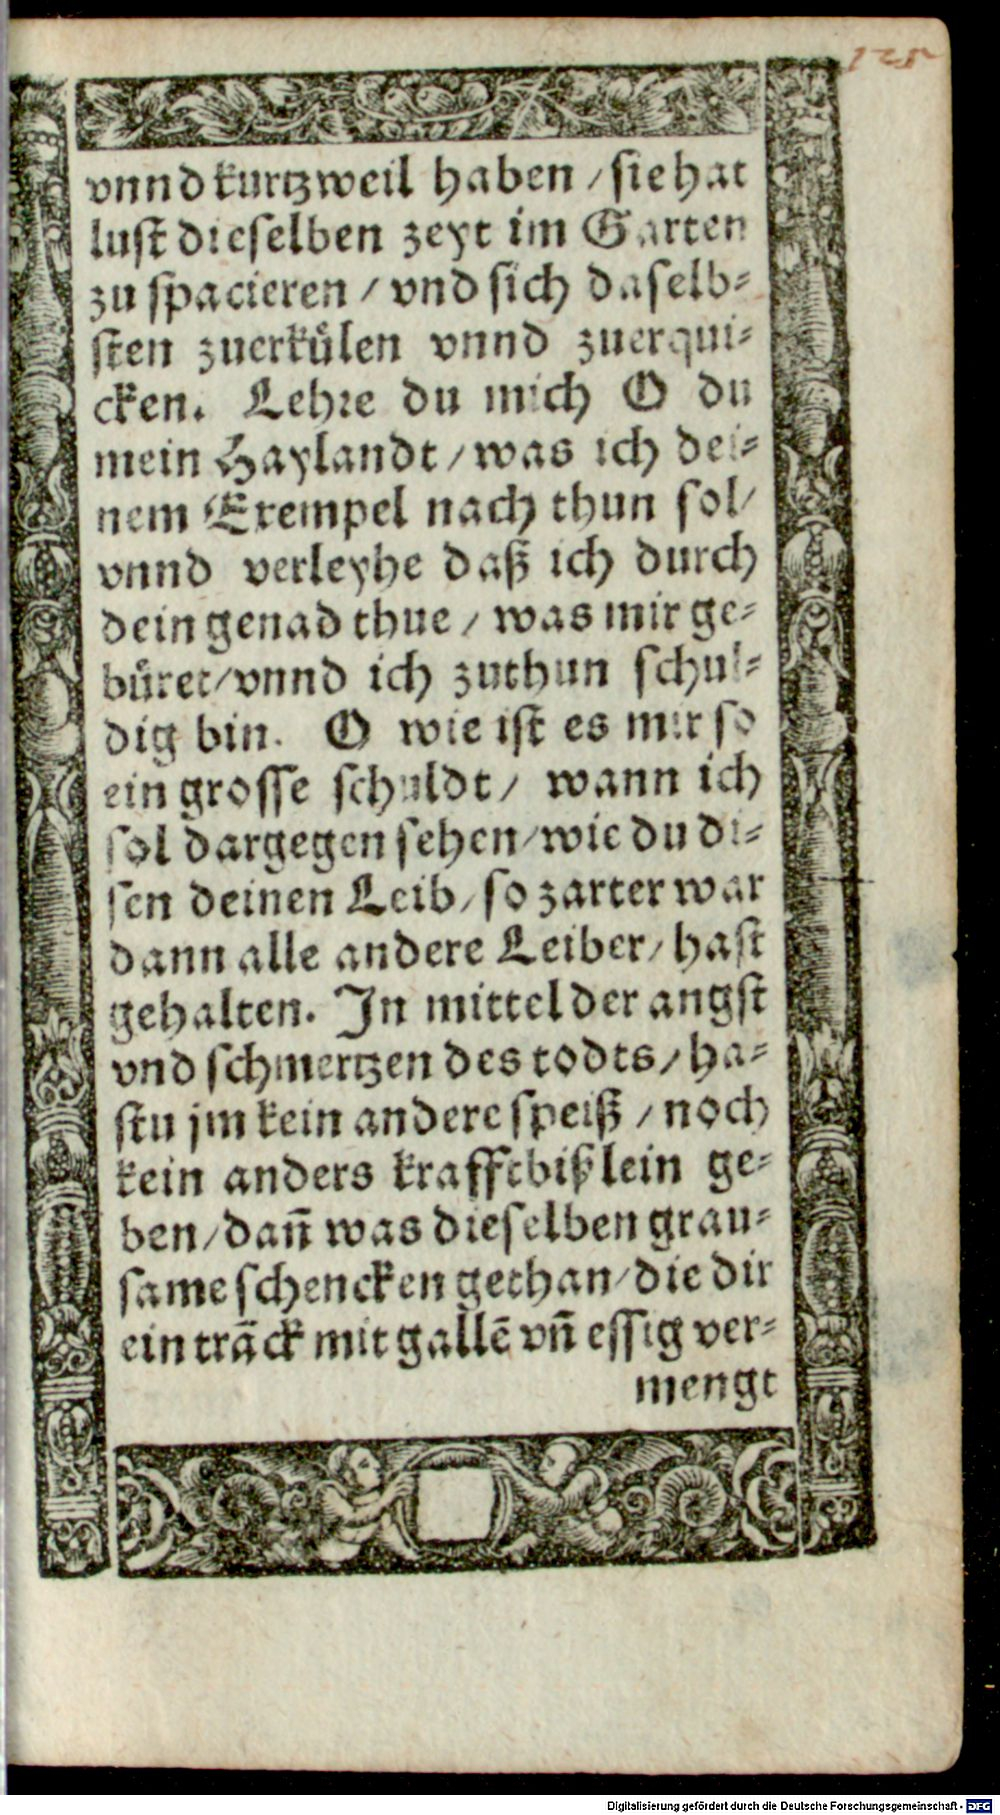 125
vnnd kurtzweil haben / sie hat
lust dieselben zeyt im Garten
zu spacieren / vnd sich daselb⸗
sten zuerkuͤlen vnnd zuerqui⸗
cken. Lehre du mich O du
mein Haylandt / was ich dei⸗
nem Exempel nach thun sol /
vnnd verleyhe daß ich durch
dein genad thue / was mir ge⸗
buͤret / vnnd ich zuthun schul⸗
dig bin. O wie ist es mir so
ein grosse schuldt / wann ich
sol dargegen sehen / wie du di⸗
sen deinen Leib / so zarter war
dann alle andere Leiber / hast
gehalten. In mittel der angst
vnd schmertzen des todts / ha⸗
stu jm kein andere speiß / noch
kein anders krafftbißlein ge⸗
ben / dañ was dieselben grau⸗
same schencken gethan / die dir
ein trãck mit gallẽ vñ essig ver⸗
mengt
Digitalisierung gefördert durch die Deutsche Forschungsgemeinschaft - DFG